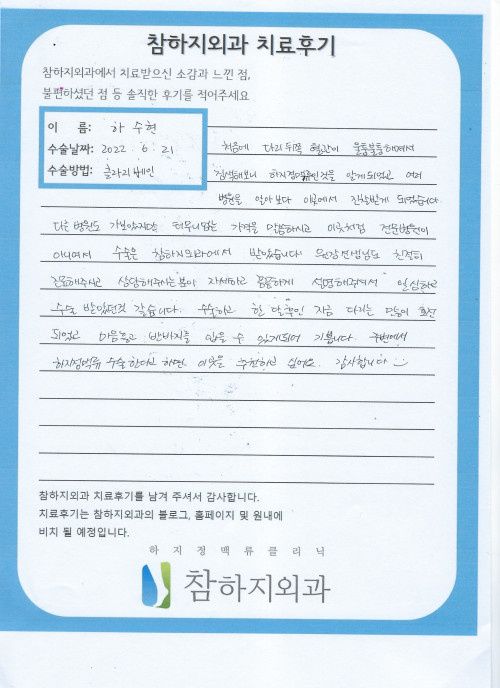 참하지외과 치료후기
참하지외과에서 치료받으신 소감과 느낀 점,
불편하셨던 점 등 솔직한 후기를 적어주세요
이 름: 하수현
수술날짜: 2022 6. 21
수술방법: 클라리베인
처음에 다리 뒤쪽 혈관이 울퉁불퉁해져서
검색해보니 하지정맥류인것을 알게되었고 여러
병원을 알아보다 이곳에서 진찰받게 되었습니다
다른 병원도 가보았지만 터무니없는 가격을 말씀하시고 이곳처럼 전문병원이
아니여서 수술은 참하지외과에서 받았습니다. 원장선생님도 친절히
진료해주시고 상담해주시는분이 자세하고 꼼꼼하게 설명해주셔서 안심하고
수술 받았던것 같습니다. 수술하고 한 달후인 지금 다리는 많이 호전
되었고 마음놓고 반바지를 입을 수 있게되어 기쁩니다. 주변에서
하지정맥류 수술한다고 하면 이곳을 추천하고 싶어요. 감사합니다
참하지외과 치료후기를 남겨 주셔서 감사합니다.
치료후기는 참하지외과의 블로그, 홈페이지 및 원내에
비치 될 예정입니다.
하지정맥류클리닉
참하지외과